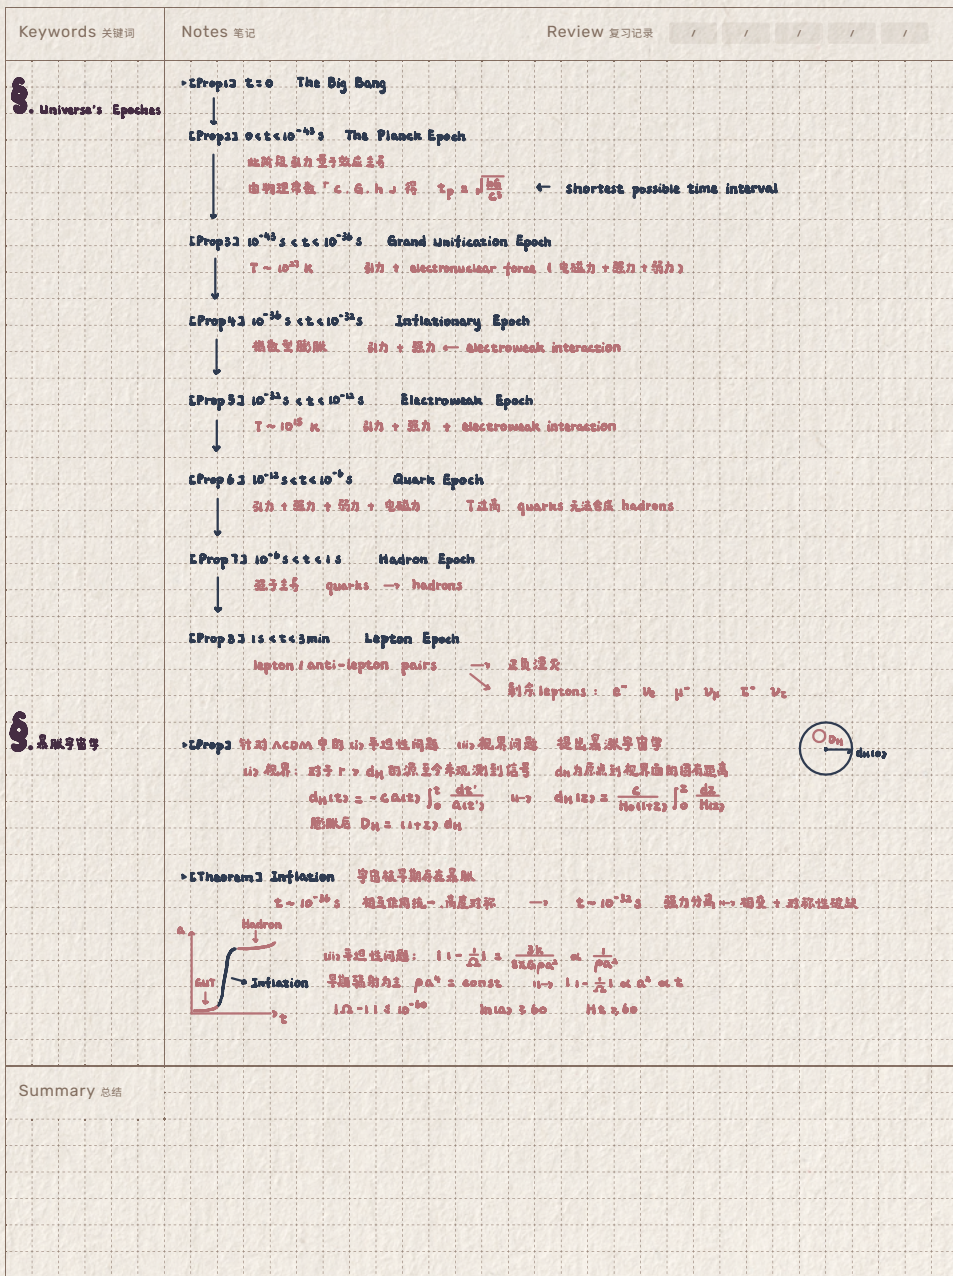 Keywords 关键词
Notes 笔记
Review 复习记录 / / / / /
§. Universe's Epoches
▸[Prop1] t=0 The Big Bang
[Prop2] 0<t<10⁻⁴³s The Planck Epoch
此阶段引力量子效应主导
由物理常数「c.G.ħ」得 t_p = √(ħG/c⁵) ← Shortest possible time interval
[Prop3] 10⁻⁴³s<t<10⁻³⁶s Grand Unification Epoch
T ~ 10²⁷ K 引力 + electronuclear force (电磁力+强力+弱力)
[Prop4] 10⁻³⁶s<t<10⁻³²s Inflationary Epoch
指数型膨胀 引力 + 强力 ← electroweak interaction
[Prop5] 10⁻³²s<t<10⁻¹²s Electroweak Epoch
T ~ 10¹⁵ K 引力 + 强力 + electroweak interaction
[Prop6] 10⁻¹²s<t<10⁻⁶s Quark Epoch
引力 + 强力 + 弱力 + 电磁力 T过高 quarks 无法合成 hadrons
[Prop7] 10⁻⁶s<t<1s Hadron Epoch
强子主导 quarks → hadrons
[Prop8] 1s<t<3min Lepton Epoch
lepton/anti-lepton pairs → 正负湮灭
剩余leptons: e⁻ νe μ⁻ νμ τ⁻ ντ
§. 暴胀宇宙学
▸[Prop] 针对ΛCDM中的(i)平坦性问题 (ii)视界问题 提出暴胀宇宙学
(i) 视界: 对于 r > dH 的源至今未观测到信号 dH为原点到视界面的固有距离
dH(t) = -ca(t) ∫₀ᵗ dt'/a(t') ↦ dH(z) = c/H₀(1+z) ∫₀ᶻ dz/H(z)
膨胀后 DH = (1+z) dH
DH
dH(a)
▸[Theorem] Inflation 宇宙极早期存在暴胀
t ~ 10⁻³⁶s 相互作用统一.高度对称 → t ~ 10⁻³²s 强力分离 ↦ 相变 + 对称性破缺
a
Hadron
GUT
Inflation
t
(ii) 平坦性问题: |1-1/Ω| = 3k/8πGρa² ∝ 1/ρa²
早期辐射为主 ρa⁴ = const ↦ |1-1/Ω| ∝ a² ∝ t
|Ω-1| ≤ 10⁻⁶⁰ ln(a) ≥ 60 Ht ≥ 60
Summary 总结